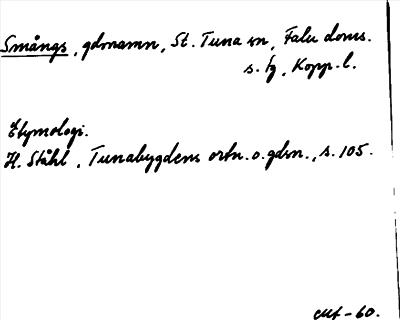 Smångs, gdsnamn, St. Tuna sn, Falu doms.
s. fg, Kopp. l.
Etymologi.
H. Ståhl, Tunabygdens ortn. o. gdsn., s. 105.
-60.